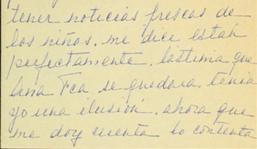 tener noticias frescas de
los niños, me dice estan
perfectamente, lástima que
Fca se quedara, tenia
yo una ilusión, ahora que
me doy cuenta lo contenta